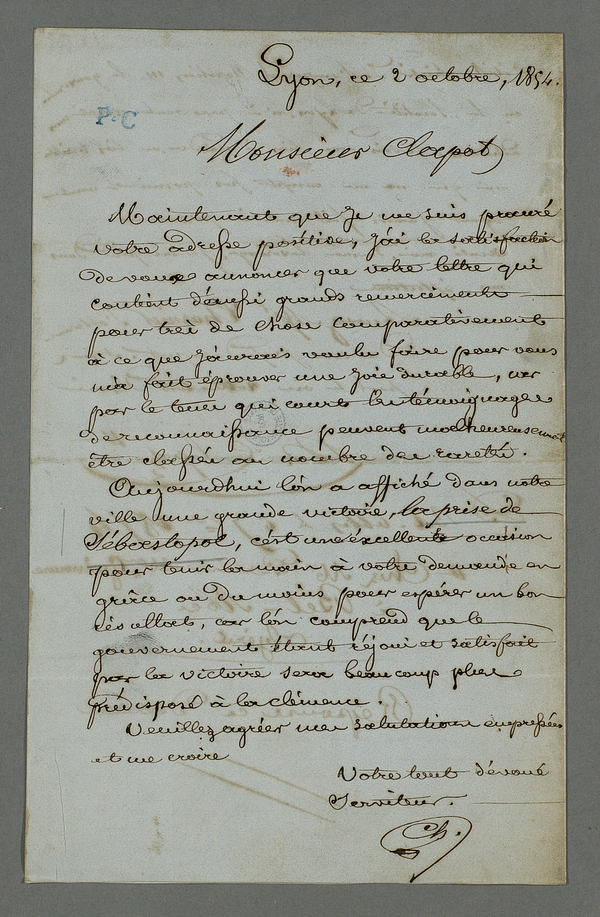 Lyon, ce 2 octobre, 1854.
P.C
Monsieur Clapot
Maintenant que je me suis procuré
votre adresse positive, j'ai la satisfaction
de vous annoncer que votre lettre qui
contient d'aussi grands remerciments
pour trei de chose comparativement
à ce que j'aurais voulu faire pour vous
m'a fait éprouver une joie durable, car
par le tems qui court les témoignages
de reconnaissance peuvent malheureusement
être classés au nombre des raretés.
Aujourd'hui l'on a affiché dans notre
ville une grande victoire, la prise de
Sébastopol, c'est une excellente occasion
pour tenir la main à votre demande en
grâce ou du moins pour espérer un bon
résultat, car l'on comprend que le
gouvernement étant réjoui et satisfait
par la victoire sera beaucoup plus
prédisposé à la clémence.
Veuillez agréer mes salutations empressées
et me croire
Votre tout dévoué
Serviteur.
Ch.